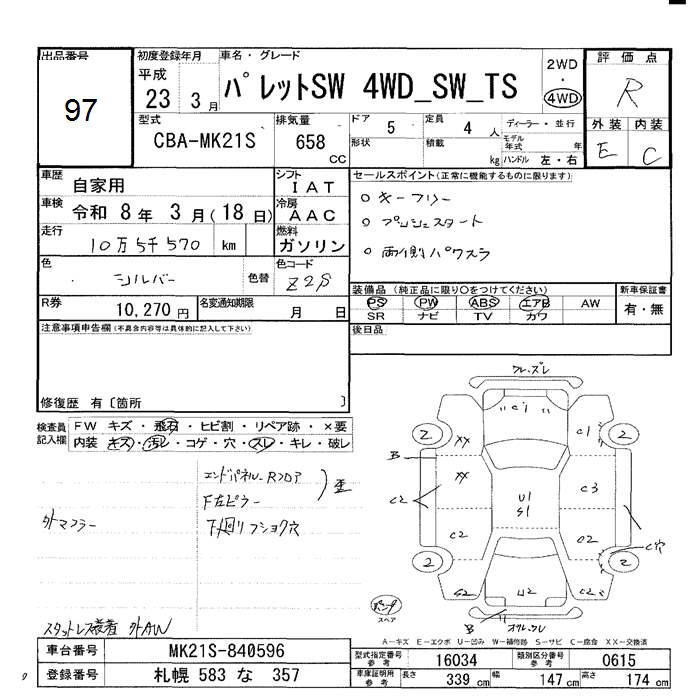 出品番号
97
初度登録年月
平成
23 3月
車名・グレード
パレットSW 4WD_SW_TS
2WD
・
4WD
評価点
R
外装 内装
E C
型式
CBA-MK21S
排気量
658
CC
ドア 5
定員 4 人
形状
積載 kg
ディーラー・並行
モデル年式 年
ハンドル 左・右
車歴
自家用
シフト
IAT
車検
令和 8年 3月(18日)
冷房
AAC
走行
10万5千570 km
燃料
ガソリン
色
シルバー
色替
色コード
Z2S
R券
10,270円
名変通知期限
月 日
セールスポイント(正常に機能するものに限ります)
○ キーフリー
○ プッシュスタート
○ 両側パワスラ
装備品 (純正品に限り○をつけてください)
PS PW ABS エアB AW
SR ナビ TV カワ
新車保証書
有・無
後日品
注意事項申告欄(不具合内容等は具体的に記入して下さい)
修復歴 有〔箇所 〕
検査員記入欄
FW キズ・飛石・ヒビ割・リペア跡・×要
内装 キズ・汚レ・コゲ・穴・スレ・キレ・破レ
エンドパネル-Rフロア
F左ピラー
)歪
下廻リフショク穴
外マフラー
スタットレス装着 外AW
ワレ、ズレ
C1
C1
2
2
XX
XX
B
C2
U1
S1
C3
C2
C2
C穴
2
2
S2
U2
C2
B
パンク
スペア
A-キズ E-エクボ U-凹み W-補修跡 S-サビ C-腐食 XX-交換済
車台番号
MK21S-840596
登録番号
札幌 583 な 357
型式指定番号
参考
16034
類別区分番号
参考
0615
車庫証明用
参考
長さ 339 cm
幅 147 cm
高さ 174 cm